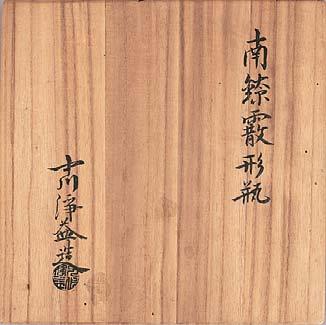 南鐐霰形瓶
中川浄益造